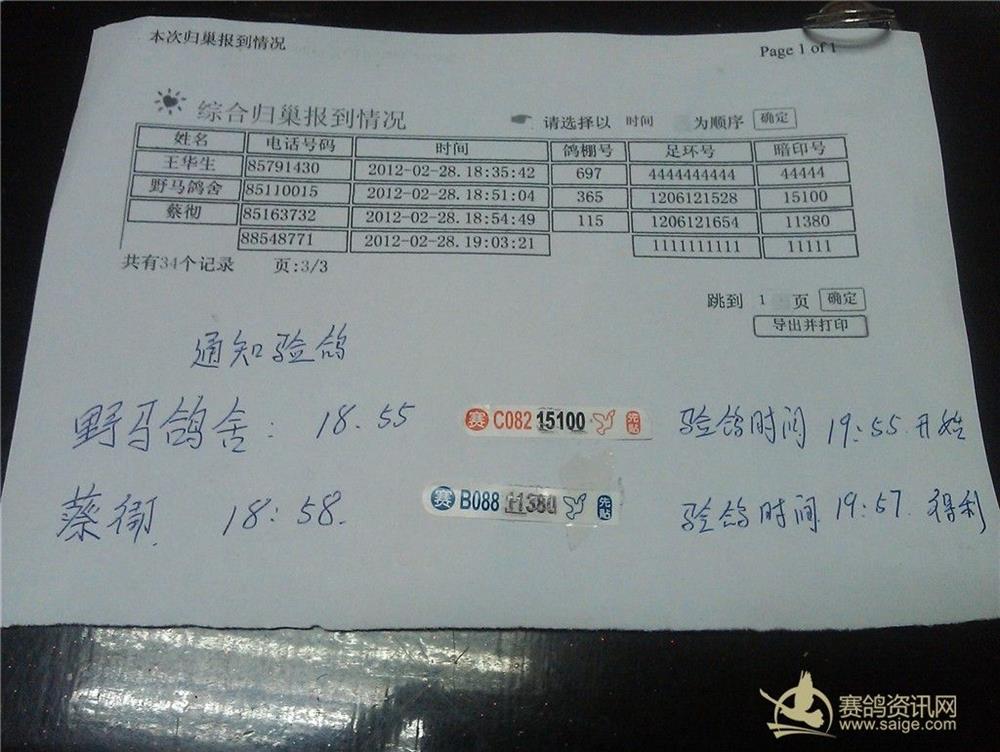 本次归巢报到情况 Page 1 of 1
综合归巢报到情况 请选择以 时间 为顺序 确定
姓名 电话号码 时间 鸽棚号 足环号 暗印号
王华生 85791430 2012-02-28.18:35:42 697 4444444444 44444
野马鸽舍 85110015 2012-02-28.18:51:04 365 1206121528 15100
蔡彻 85163732 2012-02-28.18:54:49 115 1206121654 11380
88548771 2012-02-28.19:03:21 1111111111 11111
共有34个记录 页:3/3
跳到 1 页 确定
导出并打印
通知验鸽
野马鸽舍: 18.55 赛 C082 15100 验鸽时间 19:55 开始
蔡 18:58. 赛 B088 11380 验鸽时间 19:57.
赛鸽资讯网
www.saige.com